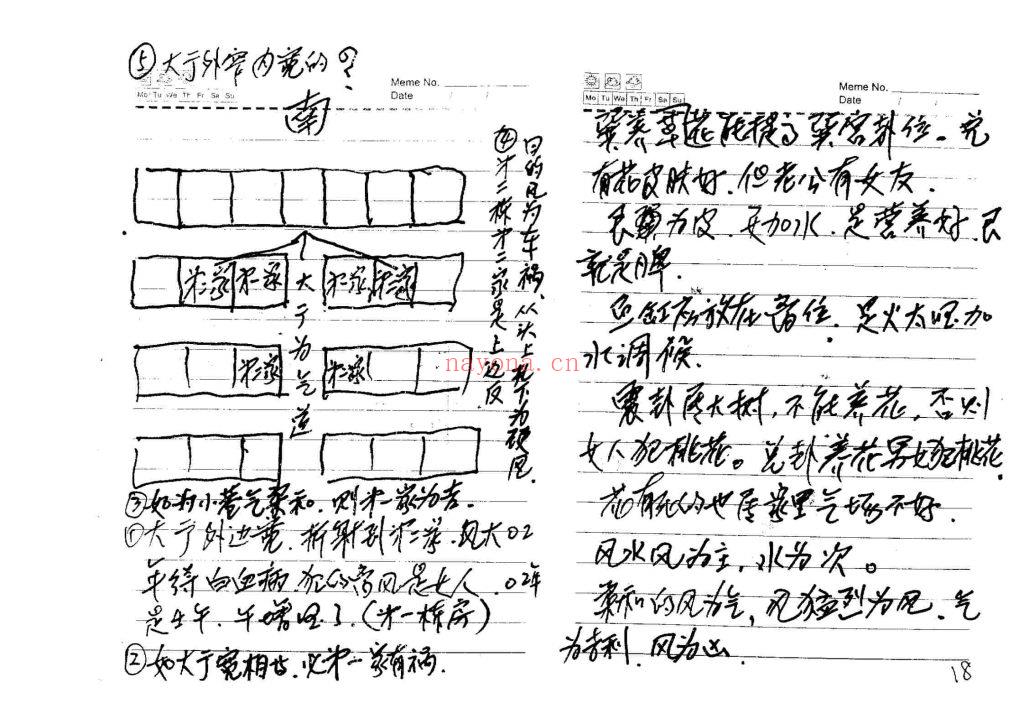 ⑤大于外窄内宽的?
Meme No.
Mo Tu We Th Fr Sa Su
Date / /
南
第二家 第一家 大于为气道 第一家 第二家
第一家 第一家
④第二栋第二家是上边反
日的风为车祸,从头上 下为硬風
③如为小巷气柔和.则第一家为吉.
①大于外边宽.折射到第二家.风大02
年得白血病.犯的 风是女人.02年
是壬午.午增旺了(第一栋房)
②如大于宽相皆.必第一家有祸.
Meme No.
Mo Tu We Th Fr Sa Su
Date / /
巽养 花能提了巽宫卦位.宅
有花皮肤好.但老公有女友.
艮 为皮.要加水.是营养好.艮
就是脾.
鱼缸应放在 位.是火太旺加
水调候.
震卦属大树,不能养花,否则
女人犯桃花。兑卦养花男女犯桃花.
花有死的也属家里气场不好.
风水风为主,水为次。
柔和的风为气,风猛烈为风.气
为吉利.风为凶.
18
nayona.cn